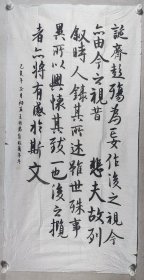 誕齊彭殤為妄作後之視今
亦由今之視昔 悲夫故列
叙時人錄其所述雖世殊事
異所以興懷其致一也後之攬
者亦將有感於斯文